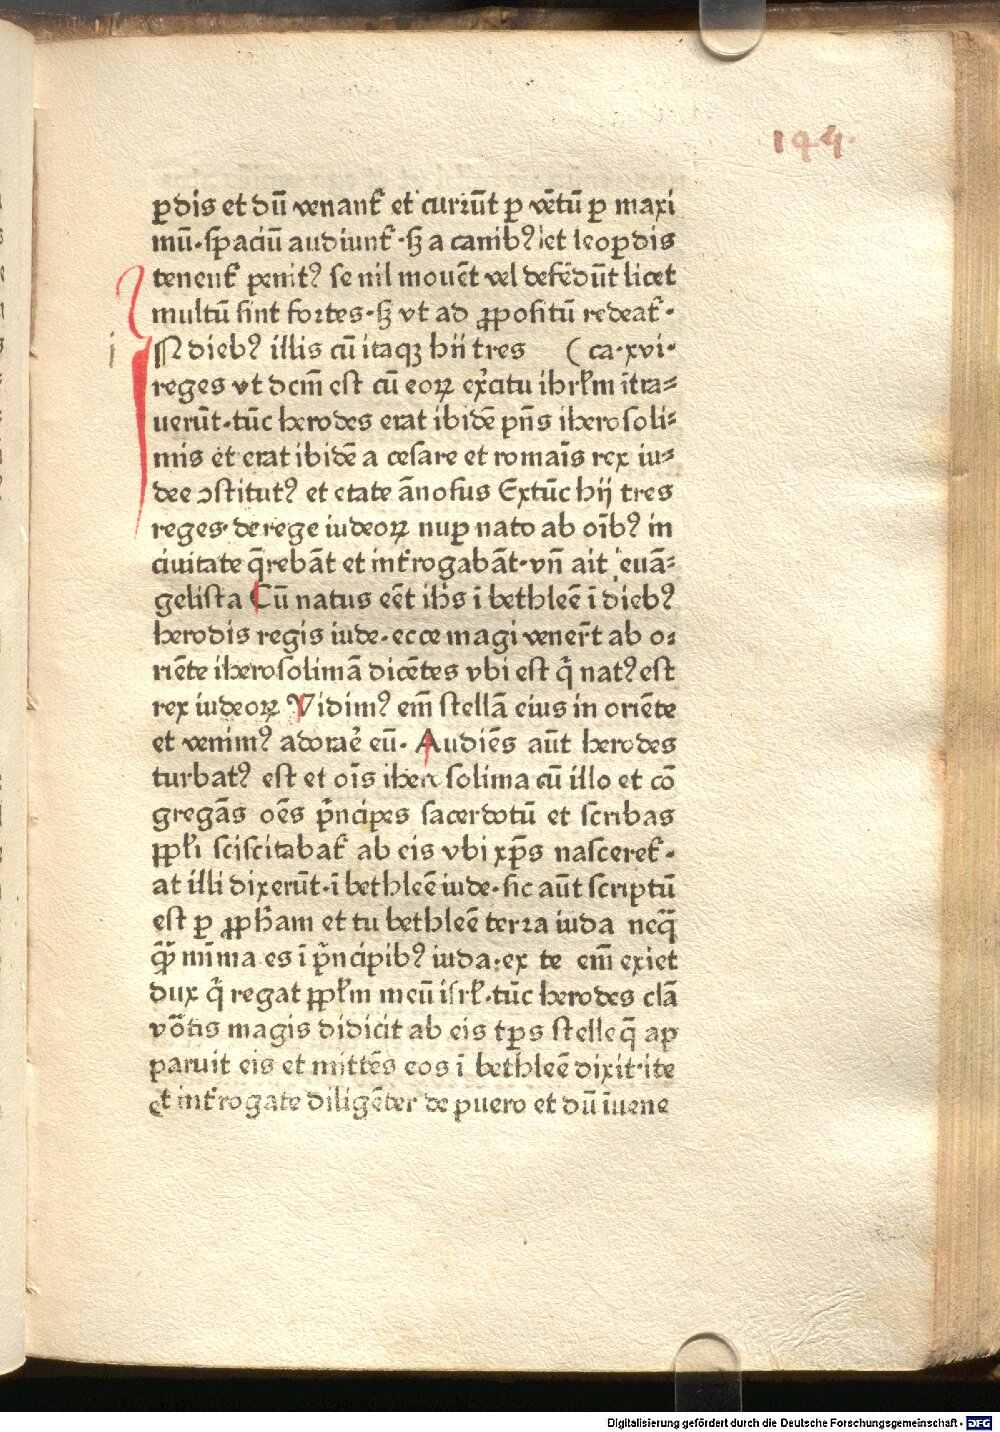 144.
ꝑdis et dū venant̄ et currūt ꝑ vētū ꝑ maxi
mū·spaciū audiunt̄·sꝫ a canibꝰ et leoꝑdis
tenent̄ penitꝰ se nil mouēt vel defēdūt licet
multū sint fortes·sꝫ vt ad ꝓpositū redeat̄·
i
IN diebꝰ illis cū itaqꝫ hii tres ( ca·xvi·
reges vt dcm̄ est cū eoꝝ exẜcitu ihrlm̄ ītra⸗
uerūt·tūc herodes erat ibidē pn̄s iherosoli⸗
mis et erat ibidē a cesare et romaīs rex iu⸗
dee ꝯstitutꝰ et etate ānosus Extūc hij tres
reges· de rege iudeoꝝ nuꝑ nato ab oībꝰ in
ciuitate q̄rebāt et int̄rogabāt·vn̄ ait euā⸗
gelista Cū natus eēt ihs̄ ī bethleē ī diebꝰ
herodis regis iude·ecce magi vener̄t ab o⸗
riēte iherosolimā dicētes vbi est q̄ natꝰ est
rex iudeoꝝ Vidimꝰ em̄ stellā eius in oriēte
et venimꝰ adorar̄e eū· Audiēs aūt herodes
turbatꝰ est et oīs iherosolima cū illo et cō
gregās oēs p̄ncipes sacerdotū et scribas
ppl̄i sciscitabat̄ ab eis vbi xp̄s nasceret̄·
at illi dixerūt·ī bethleē iude·sic aūt scriptū
est ꝑ ꝓph̄am et tu bethleē terra iuda neq̄
q̄ꝗ̄ mīma es ī p̄ncipibꝰ iuda·ex te em̄ exiet
dux q̄ regat ppl̄m meū isrl̄·tūc herodes clā
vōtis magis didicit ab eis tp̄s stelle q̄ ap
paruit eis et mittēs eos ī bethleē dixit·ite
et int̄rogate diligēter de puero et dū īuene
Digitalisierung gefördert durch die Deutsche Forschungsgemeinschaft - DFG